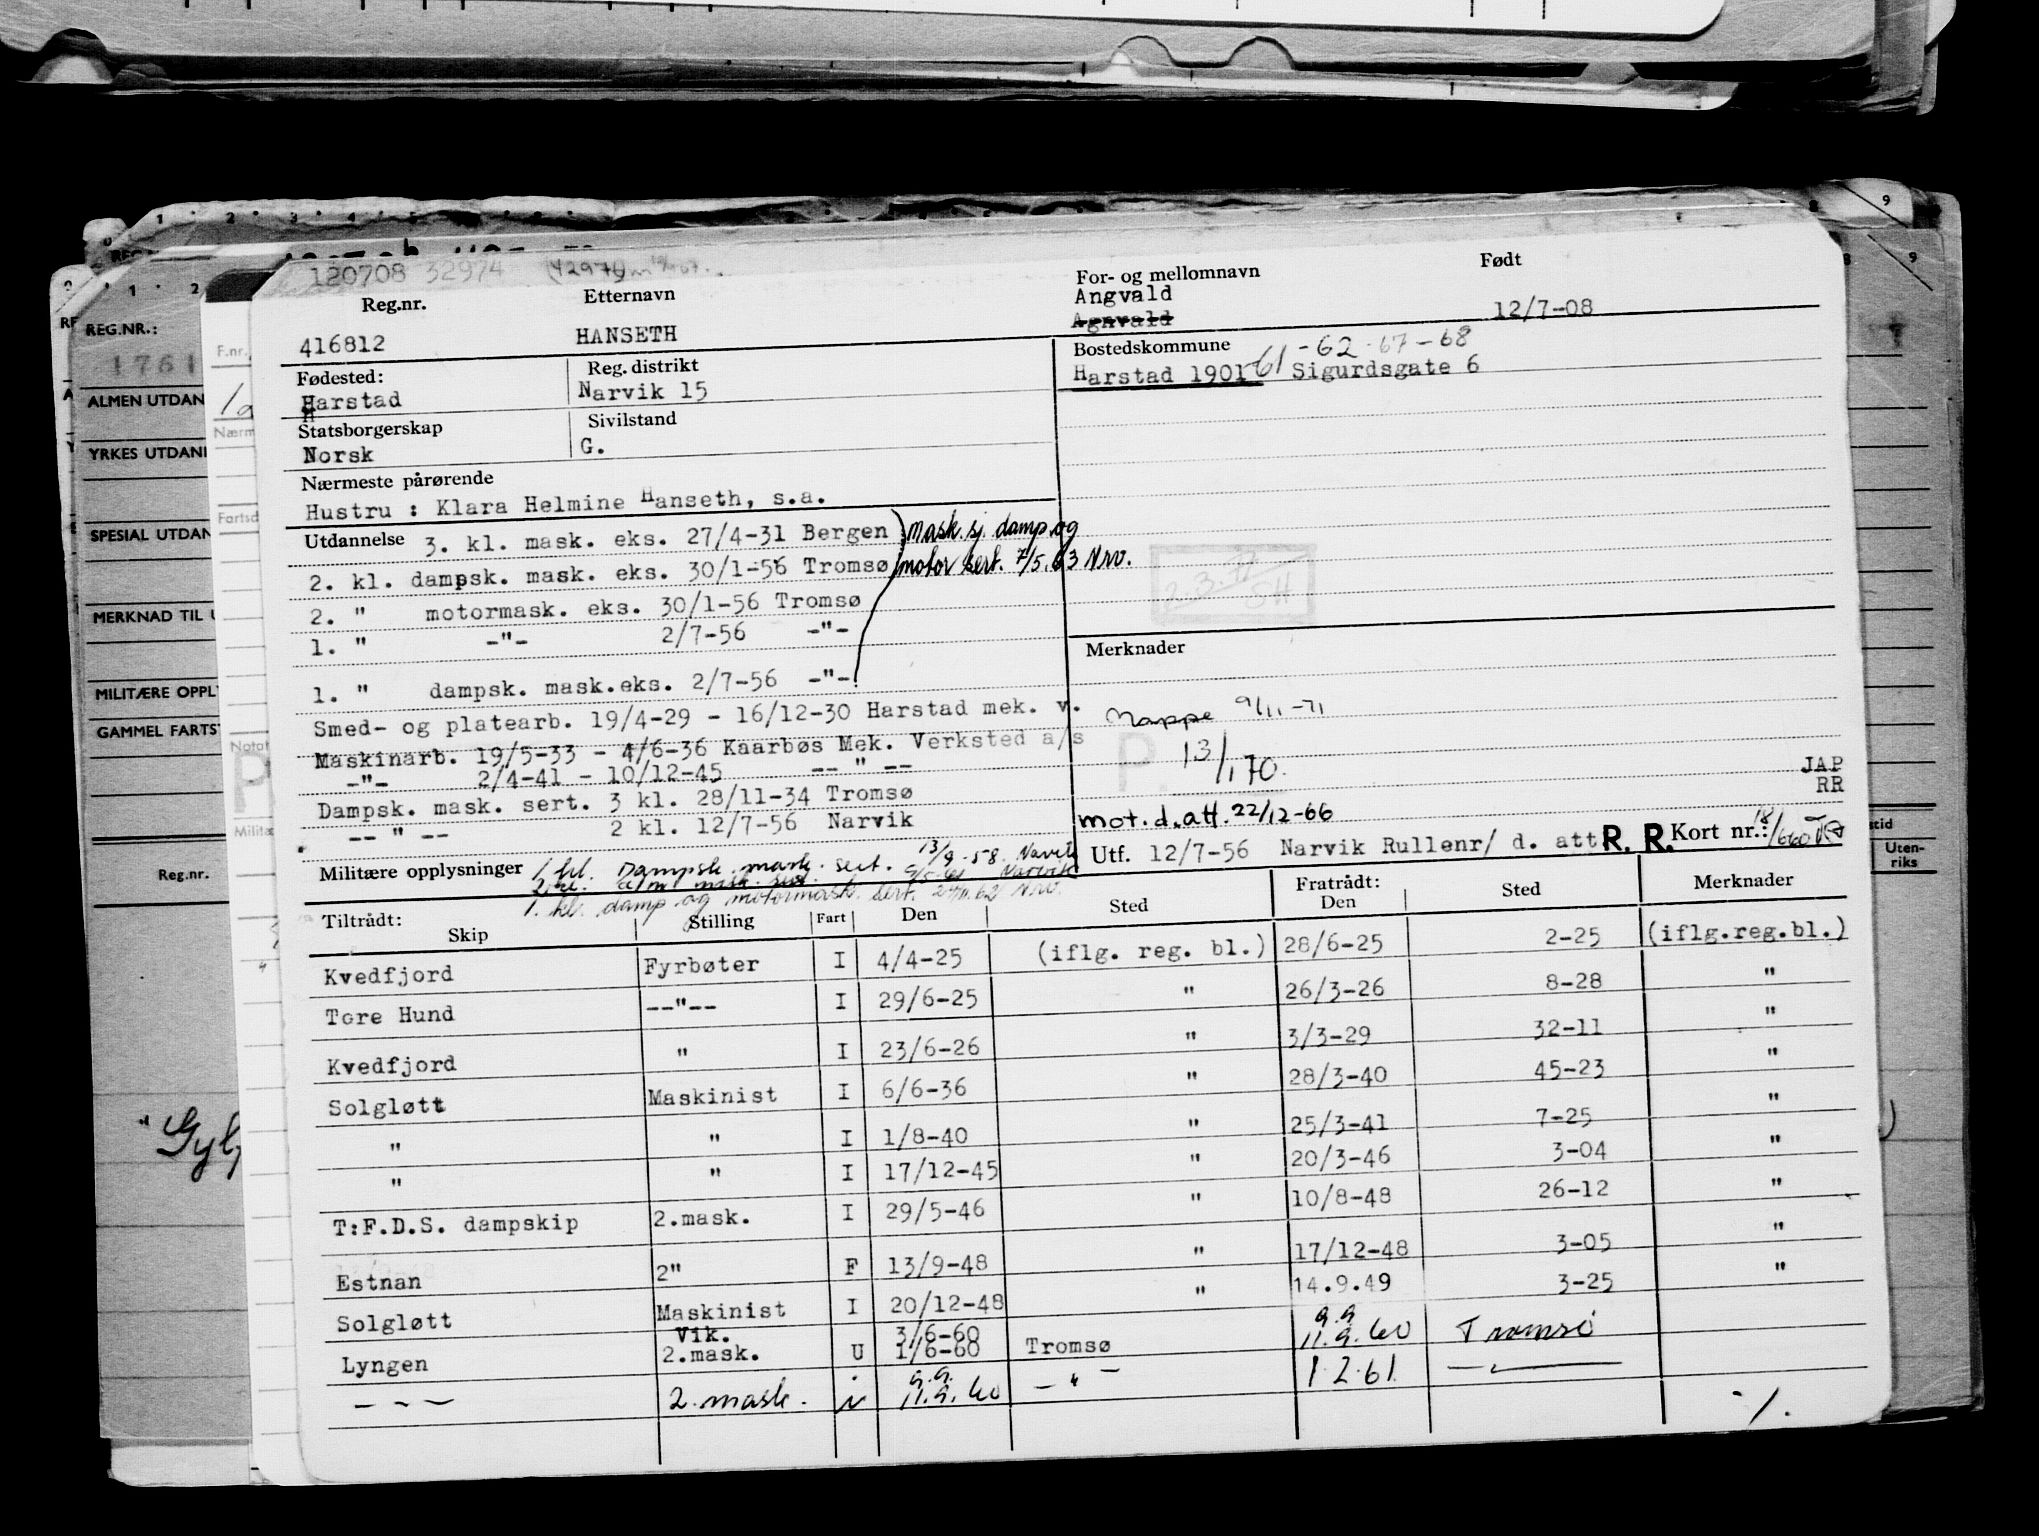 120708 32974
Reg.nr. Etternavn For- og mellomnavn Født
Angvald
Agnvald
416812 HANSETH 12/7-08
Fødested: Reg. distrikt Bostedskommune 61-62-67-68
Harstad Narvik 15 Harstad 1901 Sigurdsgate 6
Statsborgerskap Sivilstand
Norsk G.
Nærmeste pårørende
Hustru : Klara Helmine Hanseth, s.a.
Utdannelse 3. kl. mask. eks. 27/4-31 Bergen mask. sj. damp og
2. kl. dampsk. mask. eks. 30/1-56 Tromsø motor sert. 7/5.63 Nrv.
2. " motormask. eks. 30/1-56 Tromsø 2.3.77 SH
1. " -"- 2/7-56 -"-
Merknader
1. " dampsk. mask.eks. 2/7-56 -"-
Smed- og platearb. 19/4-29 - 16/12-30 Harstad mek. v. Mappe 9/11-71
Maskinarb. 19/5-33 - 4/6-36 Kaarbøs Mek. Verksted a/s P. 13/1 70.
-"- 2/4-41 - 10/12-45 -- " -- JAP
Dampsk. mask. sert. 3 kl. 28/11-34 Tromsø RR
-- " -- 2 kl. 12/7-56 Narvik mot. d. att. 22/12-66
Utf. 12/7-56 Narvik Rullenr/ d. att R. R. Kort nr.:
Militære opplysninger 1 kl. Dampsk. mask. sert. 13/9-58 Narvik
1. kl. damp og motormask. sert. Nrv.
Tiltrådt: Fratrådt:
Skip Stilling Fart Den Sted Den Sted Merknader
Kvedfjord Fyrbøter I 4/4-25 (iflg. reg. bl.) 28/6-25 2-25 (iflg.reg.bl.)
Tore Hund --"-- I 29/6-25 " 26/3-26 8-28 "
Kvedfjord " I 23/6-26 " 3/3-29 32-11 "
Solgløtt Maskinist I 6/6-36 " 28/3-40 45-23 "
" " I 1/8-40 " 25/3-41 7-25 "
" " I 17/12-45 " 20/3-46 3-04 "
T:F.D.S. dampskip 2.mask. I 29/5-46 " 10/8-48 26-12 "
Estnan 2" F 13/9-48 " 17/12-48 3-05 "
Solgløtt Maskinist I 20/12-48 " 14.9.49 3-25 "
Vik. 3/6-60 9.9
Lyngen 2.mask. U 1/6-60 Tromsø 11.9.60 Tromsø
- - - 2. mask. i 9.9. 11.9.60 - " - 1.2.61 - " -
./.
REG.NR.:
1761
ALMEN UTDAN
YRKES UTDAN
SPESIAL UTDAN
MERKNAD TIL U
MILITÆRE OPPL
GAMMEL FARTS
Reg.nr.
F.nr.
Nærm
Fartsd
Notat
P
Militæ
Uten-
riks